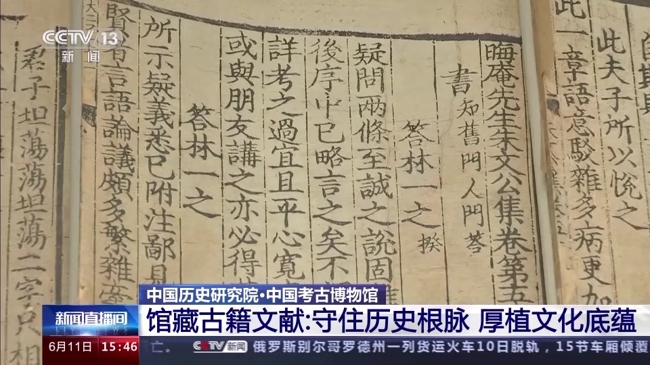 CCTV 13
新闻
此夫子所以悅之
此一章語意駁雜多病更加
晦庵先生朱文公集卷第五
書 知舊門人問荅
荅林一之 揆
疑問兩條至誠之說固
後序中已略言之矣不
詳考之過宜且平心寬
或與朋友講之亦必得
荅林一之
所示疑義悉已附注鄙見
賢者言語論議頗多繁雜
君子坦蕩蕩坦蕩二字只相
中国历史研究院·中国考古博物馆
新闻直播间
馆藏古籍文献:守住历史根脉 厚植文化底蕴
6月11日 15:46
CCTV 13 新闻 俄罗斯别尔哥罗德州一列货运火车10日脱轨，15节车厢倾覆